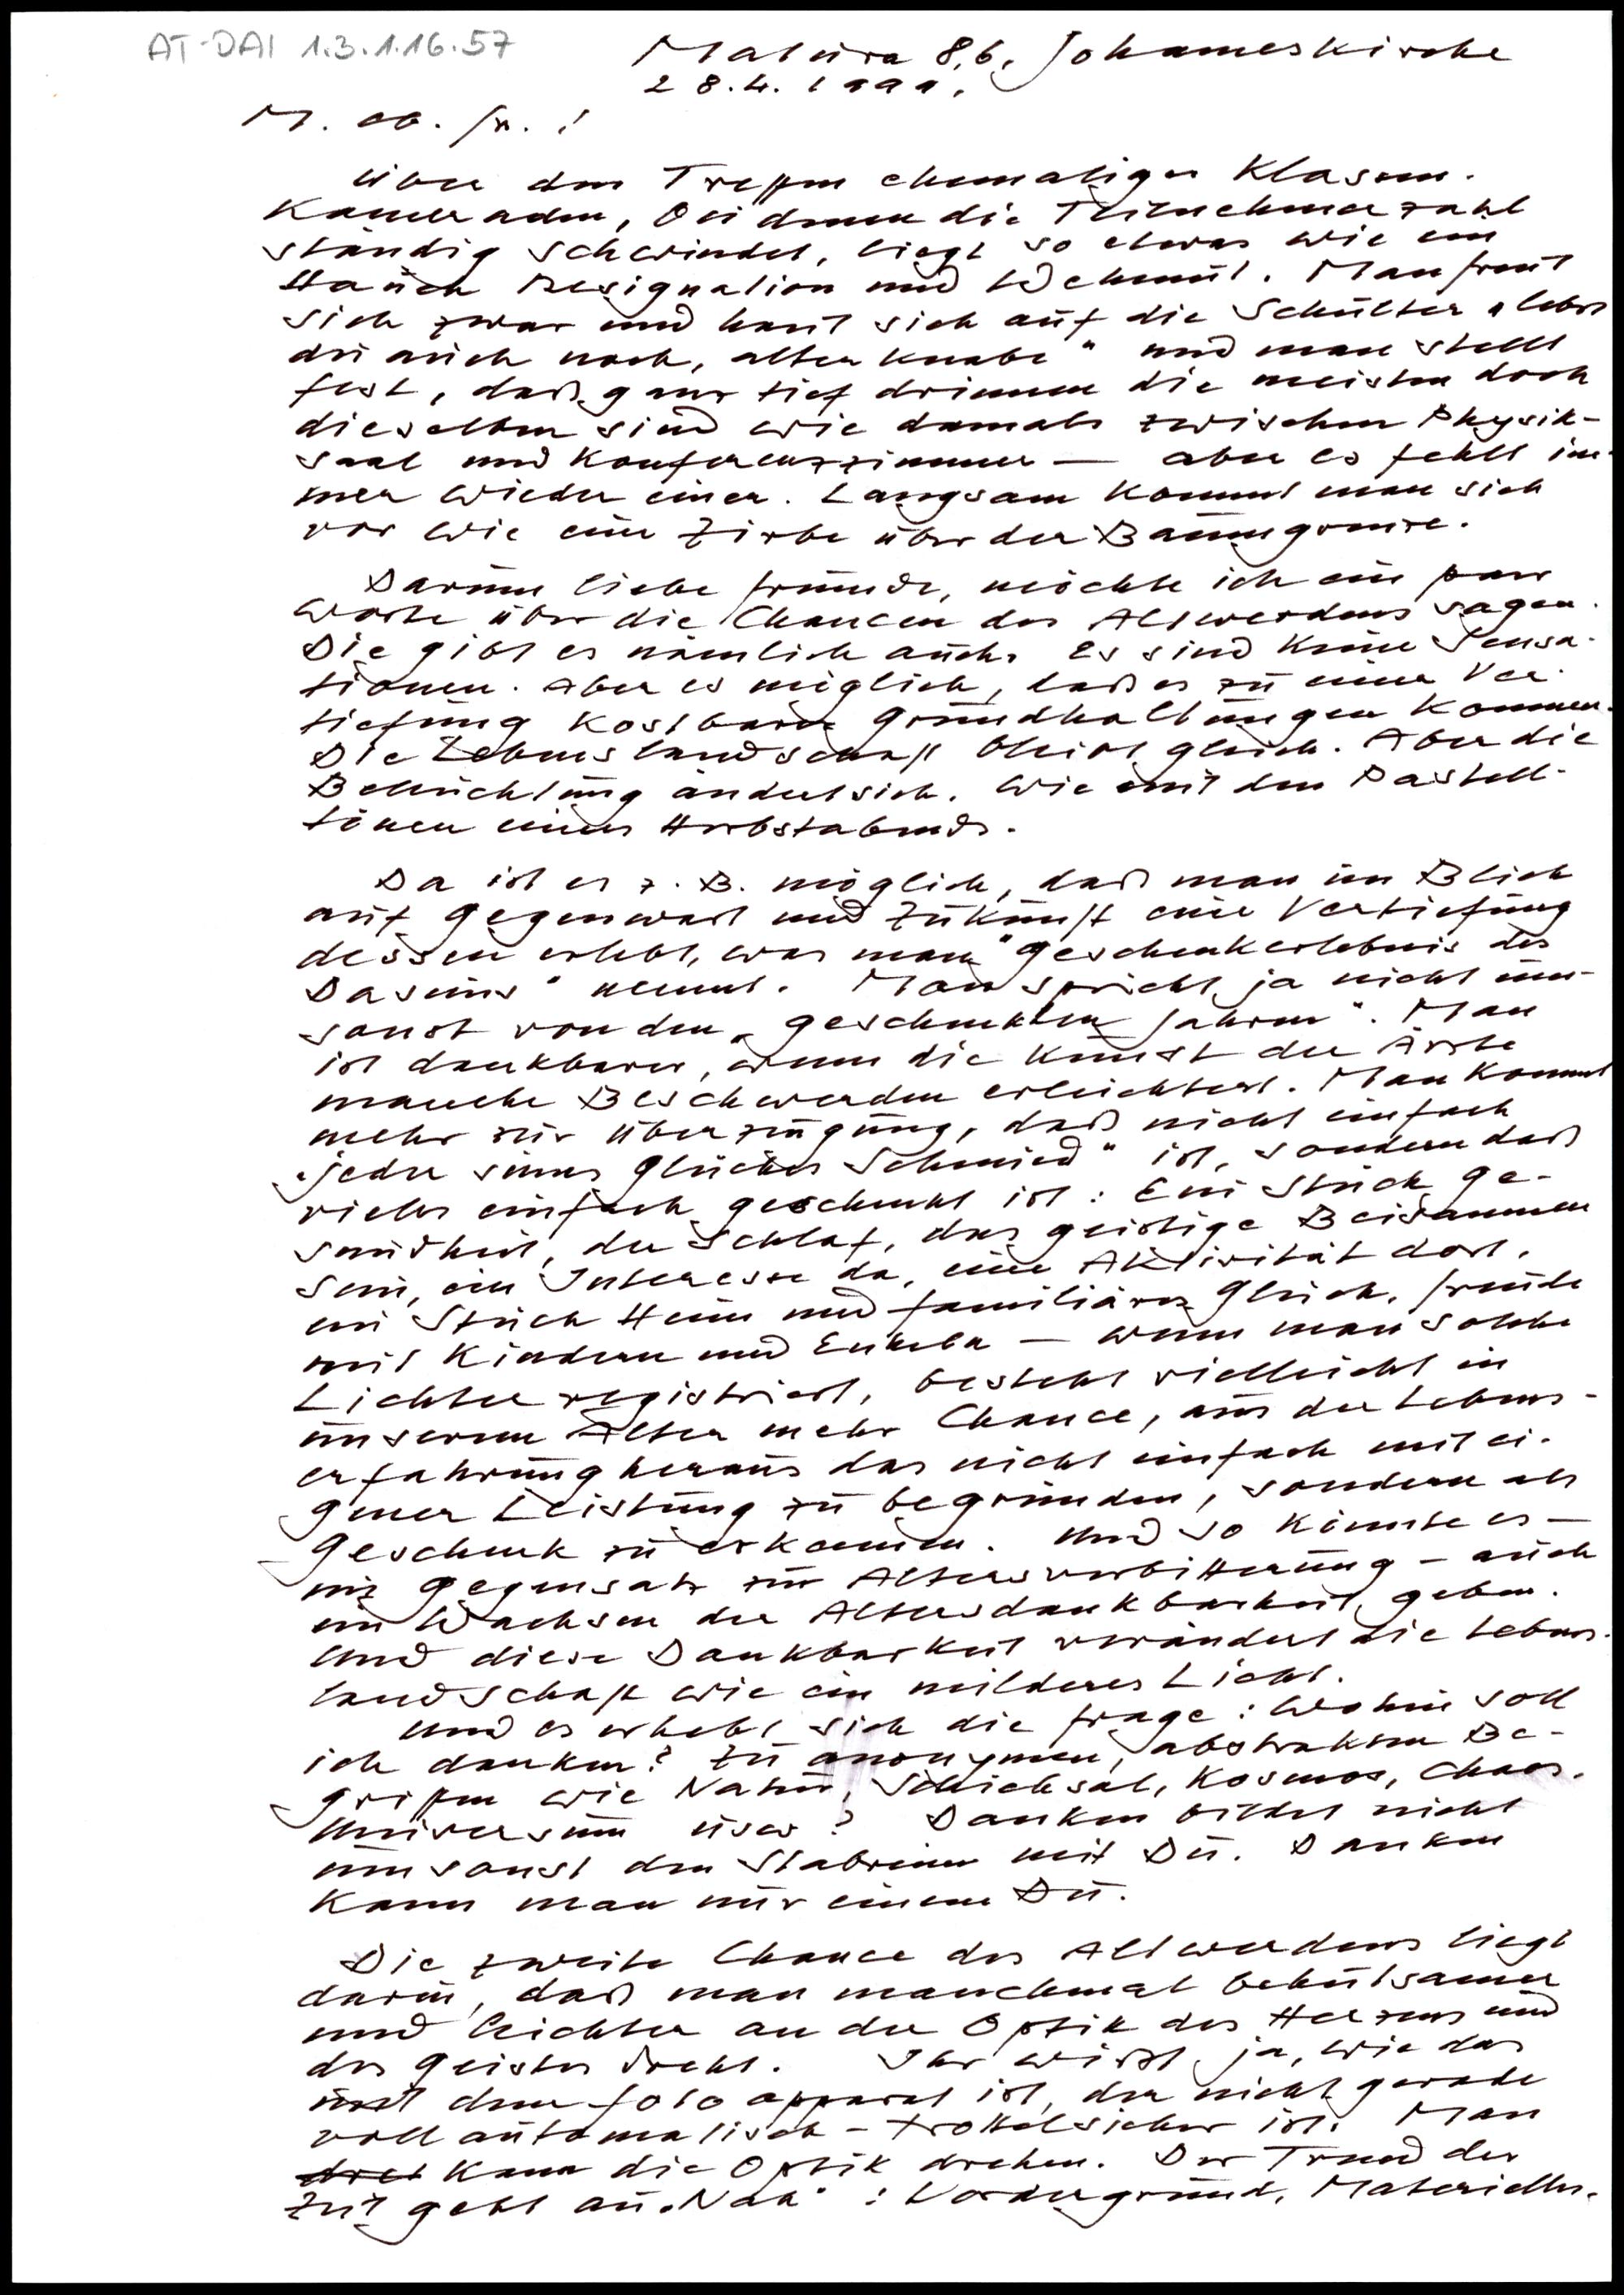 AT-DAI 1.3.1.16.57
Matura 8.b, Johanneskirche
28.4.1999.
M. db. Fr.!
Über den Treffen ehemaliger Klassen-
kameraden, bei denen die Teilnehmerzahl
ständig schwindet, liegt so etwas wie ein
Hauch Resignation und Wehmut. Man freut
sich zwar und haut sich auf die Schulter „lebst
du auch noch, alter Knabe" und man stellt
fest, daß ganz tief drinnen die meisten doch
dieselben sind wie damals zwischen Physik-
saal und Konferenzzimmer – aber es fehlt im-
mer wieder einer. Langsam kommt man sich
vor wie eine Zirbe über der Baumgrenze.
Darum liebe Freunde, möchte ich ein paar
Worte über die Chancen des Altwerdens sagen.
Die gibt es nämlich auch. Es sind keine Sensa-
tionen. Aber es möglich, daß es zu einer Ver-
tiefung kostbarer Grundhaltungen kommen.
Die Lebenslandschaft bleibt gleich. Aber die
Beleuchtung ändert sich. Wie mit den Pastell-
tönen eines Herbstabends.
Da ist es z. B. möglich, daß man im Blick
auf Gegenwart und Zukunft eine Vertiefung
dessen erlebt, was man "Geschenkerlebnis des
Daseins" nennt. Man spricht ja nicht um-
sonst von den „geschenkten Jahren". Man
ist dankbarer, wenn die Kunst der Ärzte
manche Beschwerden erleichtert. Man kommt
mehr zur Überzeugung, daß nicht einfach
„jeder seines Glückes Schmied" ist, sondern daß
vieles einfach geschenkt ist: Ein Stück Ge-
sundheit, der Schlaf, das geistige Beisammen
sein, ein Interesse da, eine Aktivität dort,
ein Stück Heim und familiäres Glück, Freude
mit Kindern und Enkeln – wenn man solche
Lichter registriert, besteht vielleicht in
unserem Alter mehr Chance, aus der Lebens-
erfahrung heraus das nicht einfach mit ei-
gener Leistung zu begründen, sondern als
Geschenk zu erkennen. Und so könnte es –
im Gegensatz zur Altersverbitterung – auch
ein Wachsen der Altersdankbarkeit geben.
Und diese Dankbarkeit verändert die Lebens-
landschaft wie ein milderes Licht.
Und es erhebt sich die Frage: Wohin soll
ich danken? Zu anonymen, abstrakten Be-
griffen wie Natur, Schicksal, Kosmos, Chaos,
Universum usw? Danken bildet nicht
umsonst den Stabreim mit Du. Danken
kann man nur einem Du.
Die zweite Chance des Altwerdens liegt
darin, daß man manchmal behutsamer
und leichter an der Optik des Herzens und
des Geistes dreht. Ihr wißt ja, wie das
mit dem Fotoapparat ist, der nicht gerade
vollautomatisch-trottelsicher ist. Man
kann die Optik drehen. Der Trend der
Zeit geht auf „Nah": Vordergrund, Materielles,